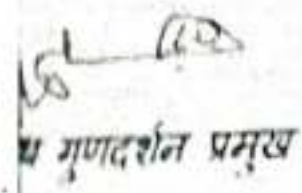 य गुणदर्शन प्रमुख